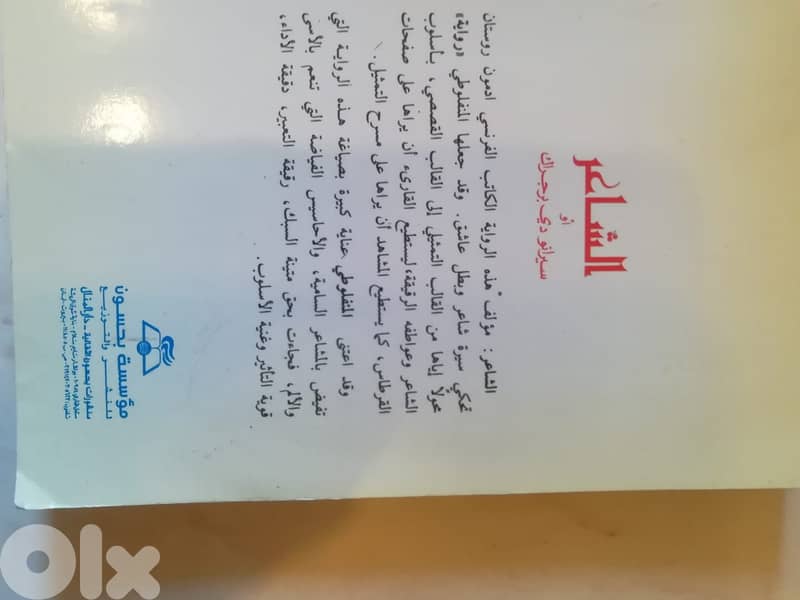 الشاعر
أو
سيرانو دي برجراك
الشاعر: مؤلف هذه الرواية الكاتب الفرنسي ادمون روستان
تحكي سيرة شاعر وبطل عاشق. وقد جعلها المنفلوطي «رواية»
محولاً إياها من القالب التمثيلي إلى القالب القصصي، بأسلوب
الشاعر وعواطفه الرقيقة، ليستطيع القارىء أن يراها على صفحات
القرطاس، كما يستطيع المشاهد أن يراها على مسرح التمثيل.
وقد اعتنى المنفلوطي عناية كبيرة بصياغة هذه الرواية التي
تفيض بالمشاعر السامية، والأحاسيس الفياضة التي تنعم بالأسى
والألم، فجاءت بحق متينة السبك، رقيقة التعبير، دقيقة الأداء،
قوية التأثير وغنية الأسلوب.
مؤسسة بحسون
للنشر والتوزيع
OLX